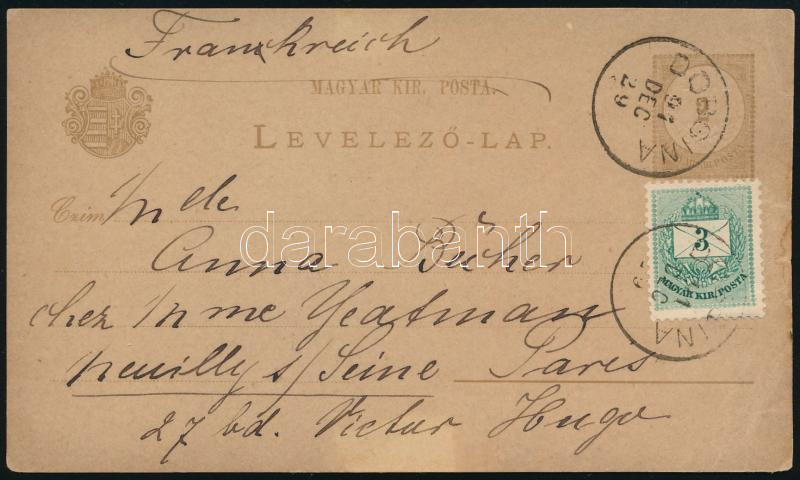 Frankreich
MAGYAR KIR. POSTA.
LEVELEZŐ-LAP.
DOBSINA
91
DEC
29
Czim
Mde
Anna Bücher
chez Mme Yeatman
neuilly s/Seine Paris
27 bd. Victor Hugo
3
MAGYAR KIR. POSTA
darabanth